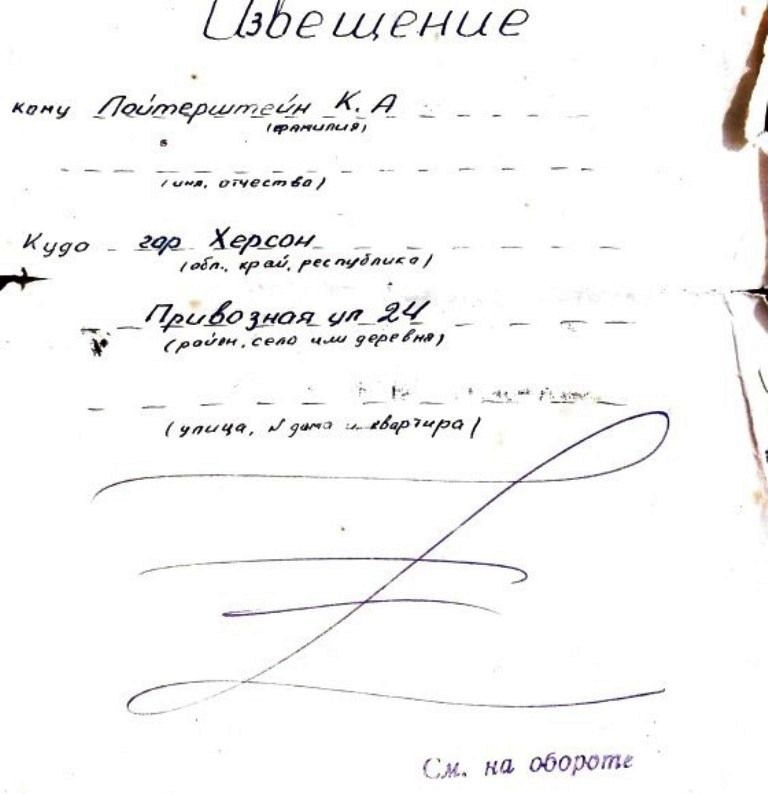 Извещение
кому Лойтерштейн К. А
(фамилия)
(имя, отчество)
Куда гор Херсон
(обл., край, республика)
Привозная ул 24
(район, село или деревня)
(улица, N дома и квартира)
См. на обороте